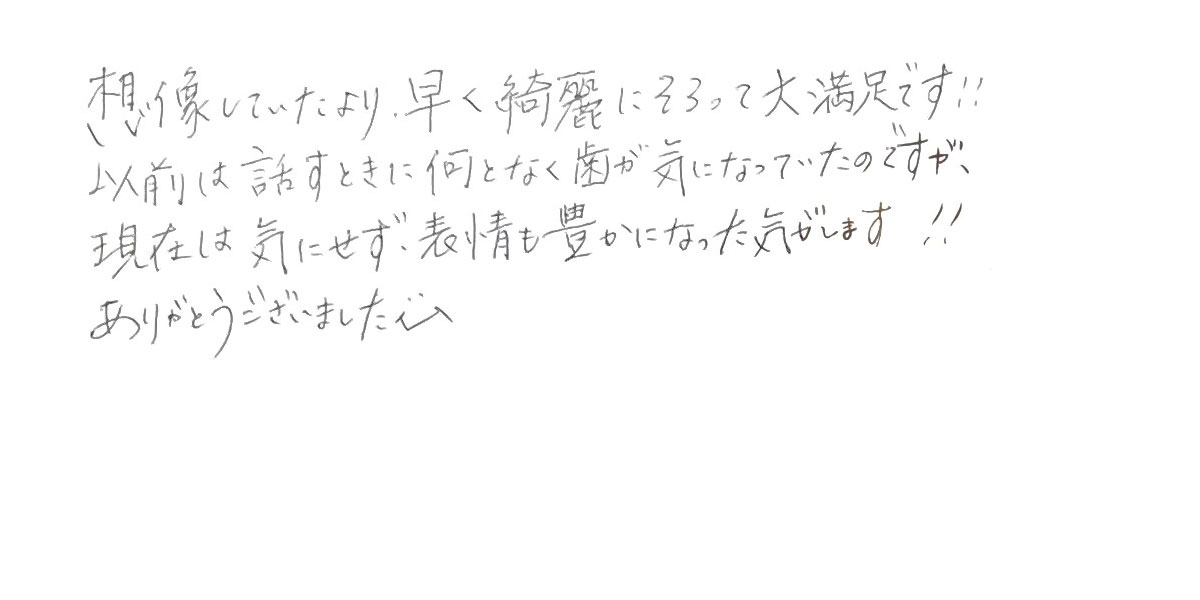 想像していたより、早く綺麗にそろって大満足です!!
以前は話すときに何となく歯が気になっていたのですが、
現在は気にせず、表情も豊かになった気がします!!
ありがとうございました